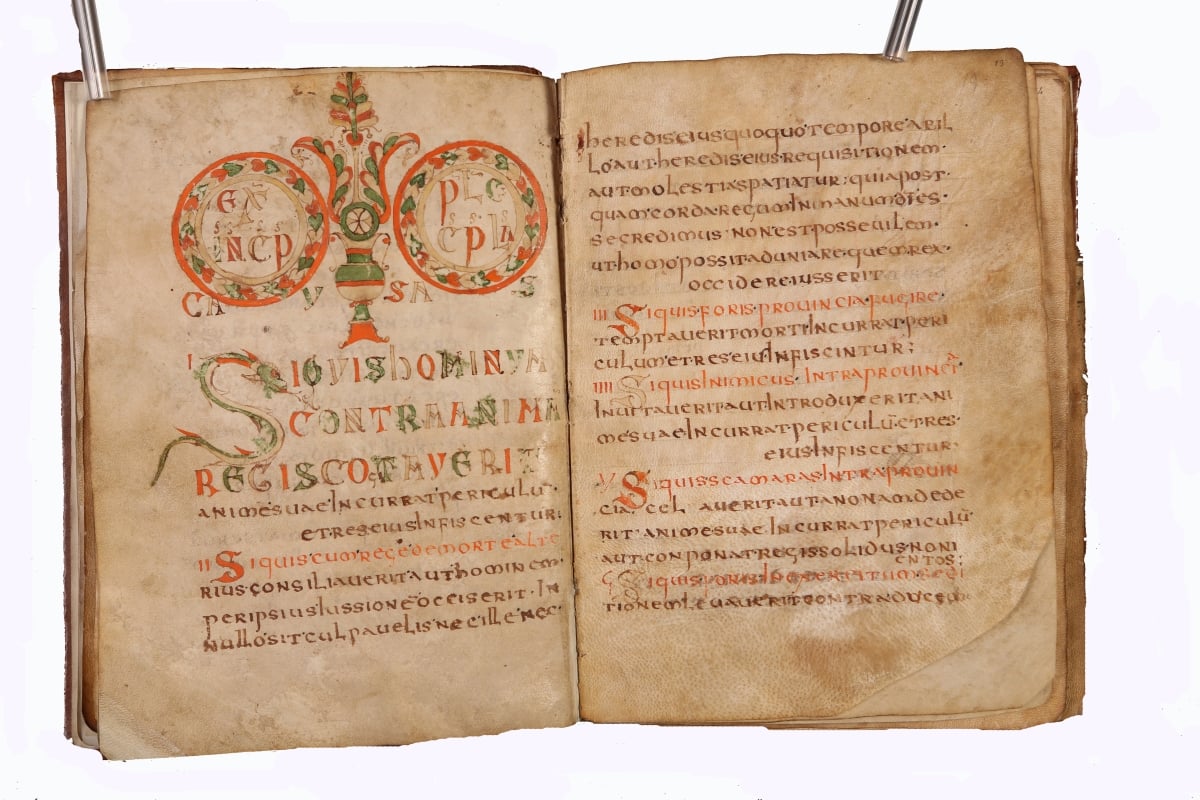 CA U SA S
I SIQUIS hOMINUM
CONTRA ANIMA
REGIS COTAVERIT
ANIMESUAE INCURRAT PERICULŪ
ET RES EIUS INFISCENTUR:
II SIQUIS CUM REGE DE MORTE ALTE
RIUS CONSILIAVERIT AUT hOMINEM
PER IPSIUS IUSSIONE OCCISERIT · IN
NULLO SIT CULPAVELIS NEC ILLE NEC
13
hEREDIS EIUS QUOQUO TEMPORE AB IL
LO AUT hEREDIS EIUS REQUISITIONEM
AUT MOLESTIAS PATIATUR; QUIA POST
QUAM CORDA REGUM IN MANUM DĪ ES
SE CREDIMUS · NON EST POSSEVILEM
UT hOMO POSSIT ADUNIARE QUEM REX
OCCIDERE IUSSERIT
III SIQUIS FORIS PROVINCIA FUGIRE
TEMPTAVERIT MORTI INCURRAT PERI
CULUM ET RES EIUS INFISCINTUR;
IIII SIQUIS INIMICUS INTRA PROVINCIA
INVITAVERIT AUT INTRODUXERIT ANI
MESUAE INCURRAT PERICULŪ ET RES
EIUS INFISCENTUR
V SIQUIS SCAMARAS INTRA PROVIN
CIA CEL AVERIT AUT ANONAM DEDE
RIT · ANIMESUAE INCURRAT PERICULŪ
AUT CONPONAT REGIS SOLIDUS NONI
ENTOS;
SIQUIS FORIS IN EXERCITUM SEDI
TIONEM LEVAVERIT CONTRA DUCEM